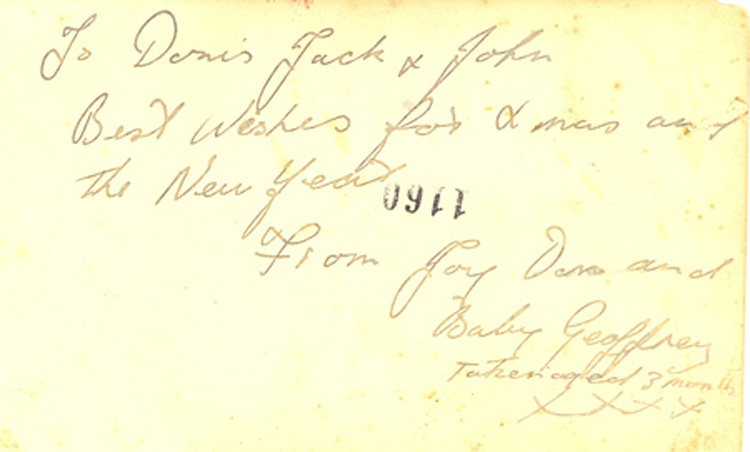 To Doris Jack & John
Best Wishes for Xmas and
the New Year
1160
From Joy and
Baby Geoffrey
Taken aged 3 months
XXXX